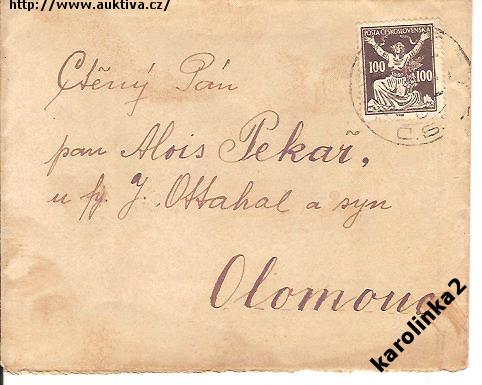 http://www.auktiva.cz/
POŠTA ČESKOSLOVENSKÁ
100 100
Ctěný Pán
pan Alois Pekař,
u fy. J. Ottahal a syn
Olomouc
karolinka2